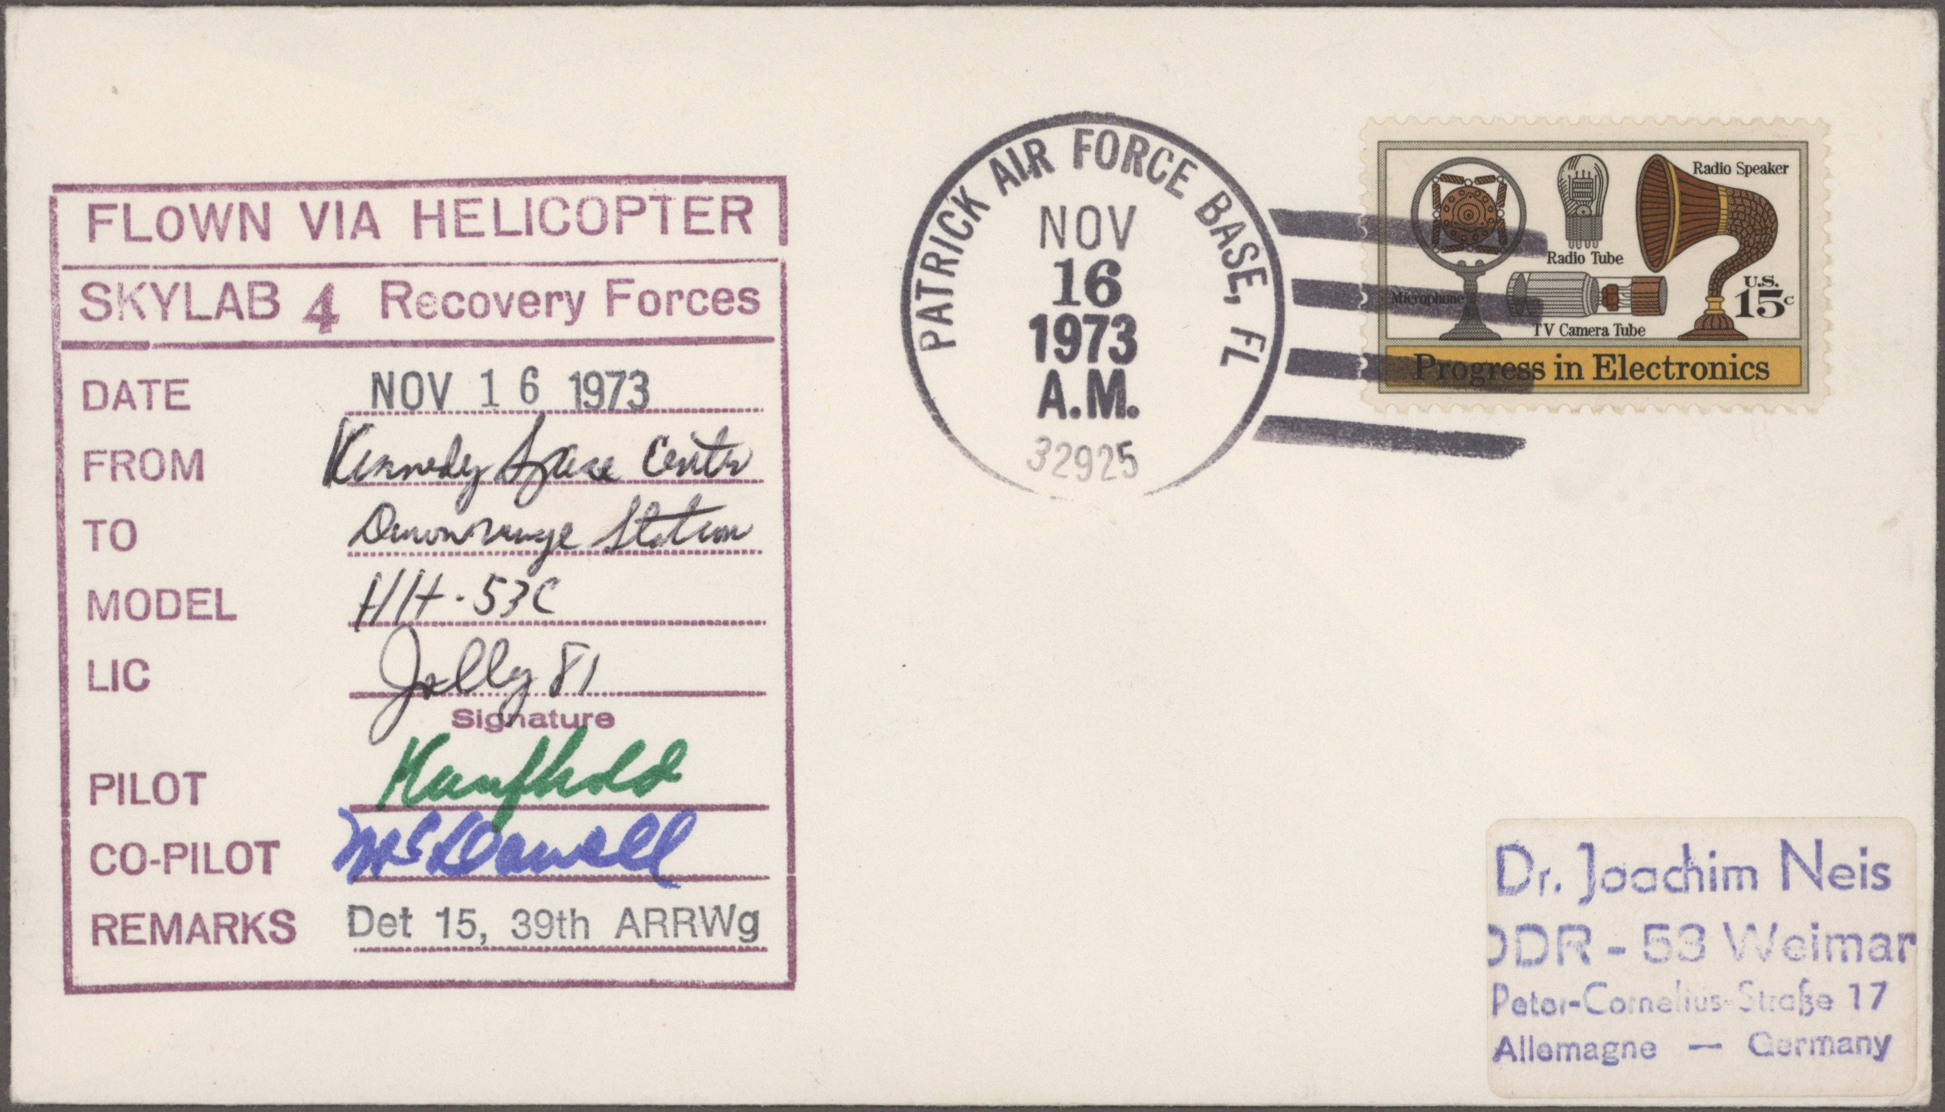 FLOWN VIA HELICOPTER
SKYLAB 4 Recovery Forces
DATE NOV 16 1973
FROM Kennedy Space Center
TO Downrange Station
MODEL HH-53C
LIC Jolly 81
Signature
PILOT Kaufhold
CO-PILOT
REMARKS Det 15, 39th ARRWg
PATRICK AIR FORCE BASE, FL
NOV
16
1973
A.M.
32925
Radio Speaker
Radio Tube
Microphone
U.S.
15c
TV Camera Tube
Progress in Electronics
Dr. Joachim Neis
DDR - 53 Weimar
Peter-Cornelius-Straße 17
Allemagne — Germany